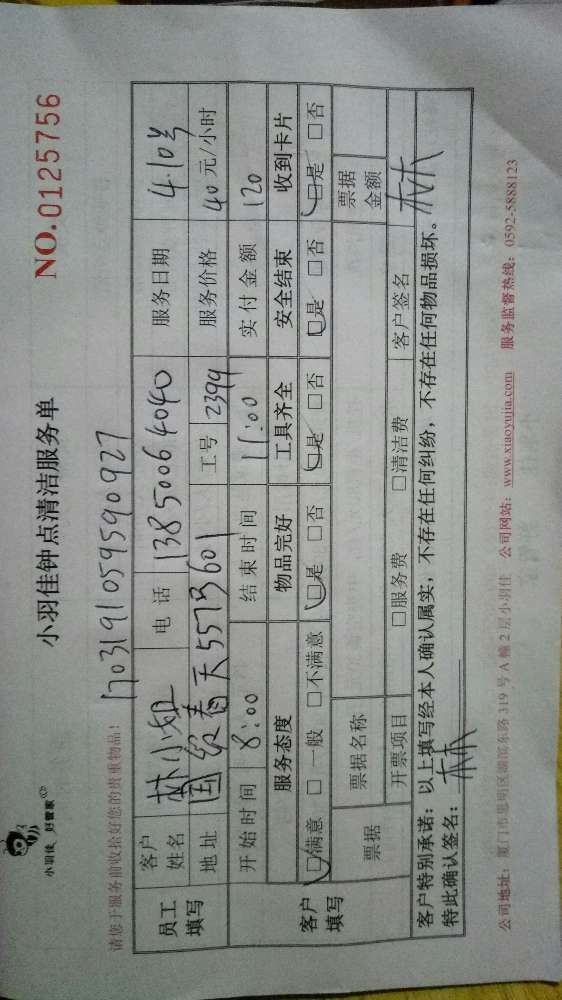 小羽佳 好管家
小羽佳钟点清洁服务单
NO.0125756
请您于服务前收拾好您的贵重物品!
1703191059590927
员工填写 客户姓名 林小姐 电话 13850064040 服务日期 4.10号
地址 国贸春天55号601 工号 2394 服务价格 40元/小时
客户填写 开始时间 8:00 结束时间 11:00 实付金额 120
服务态度 物品完好 工具齐全 安全结束 收到卡片
☑满意 □一般 □不满意 ☑是 □否 ☑是 □否 ☑是 □否 ☑是 □否
票据 票据名称 票据金额
开票项目 □服务费 □清洁费 客户签名 林
客户特别承诺:以上填写经本人确认属实,不存在任何纠纷,不存在任何物品损坏。
特此确认签名: 林
公司地址:厦门市思明区湖滨东路319号A幢2层小羽佳 公司网站:www.xiaoyujia.com 服务监督热线:0592-5888123